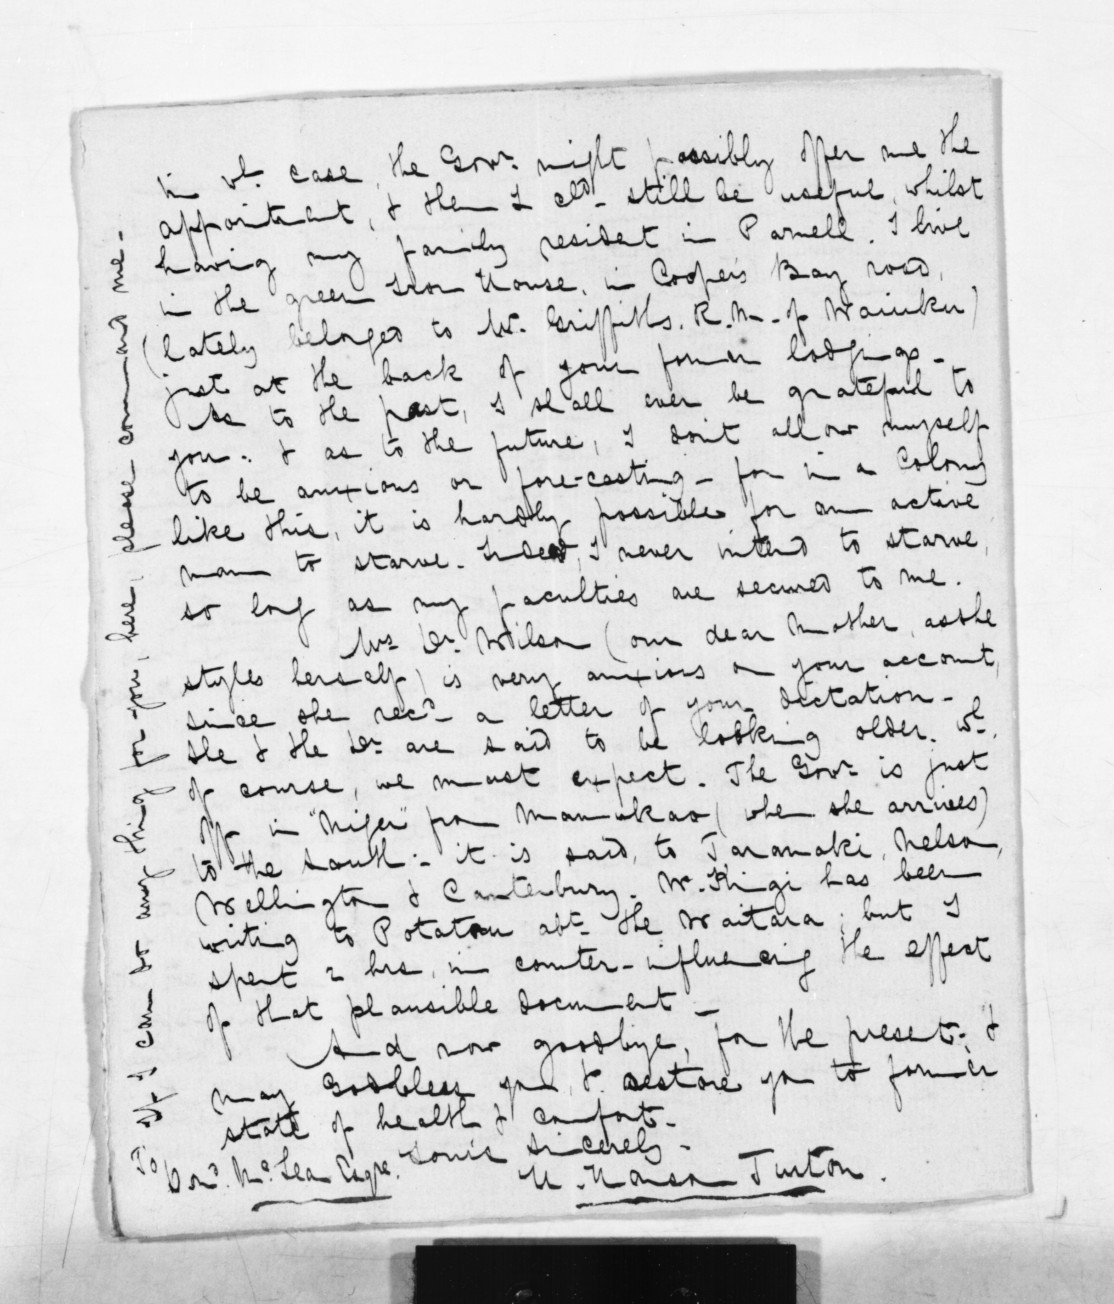 in wh. case, the Govr. might possibly offer me the
appointment, & then I cld. still be useful, whilst
having my family resident in Parnell. I live
in the green Iron House, in Cooper's Bay road,
(lately belonged to Mr. Griffiths. R.M. of Waiuku)
just at the back of your former lodgings.
As to the past, I shall ever be grateful to
you. & as to the future, I don't allow myself
to be anxious or fore-casting - for in a Colony
like this, it is hardly possible for an active
man to starve. Indeed, I never intend to starve,
so long as my faculties are secured to me.
Mrs Dr. Wilson (our dear Mother, as she
styles herself) is very anxious on your account,
since she recd. a letter of your dictation -
She & the Dr. are said to be looking older. wh.
of course, we must expect. The Govr. is just
off in "Niger" from Manukao (when she arrives)
to the South - it is said, to Taranaki, Nelson,
Wellington & Canterbury. W. Kingi has been
writing to Potatau abt. the Waitara; but I
spent 2 hrs, in counter-influencing the effect
of that plausible document -
And now goodbye, for the present - &
may God bless you, & restore you to former
state of health & comfort -
Yours sincerely -
H. Hanson Turton.
To
Dond. McLean Esqre.
If I can do any thing for you, here, please command me -